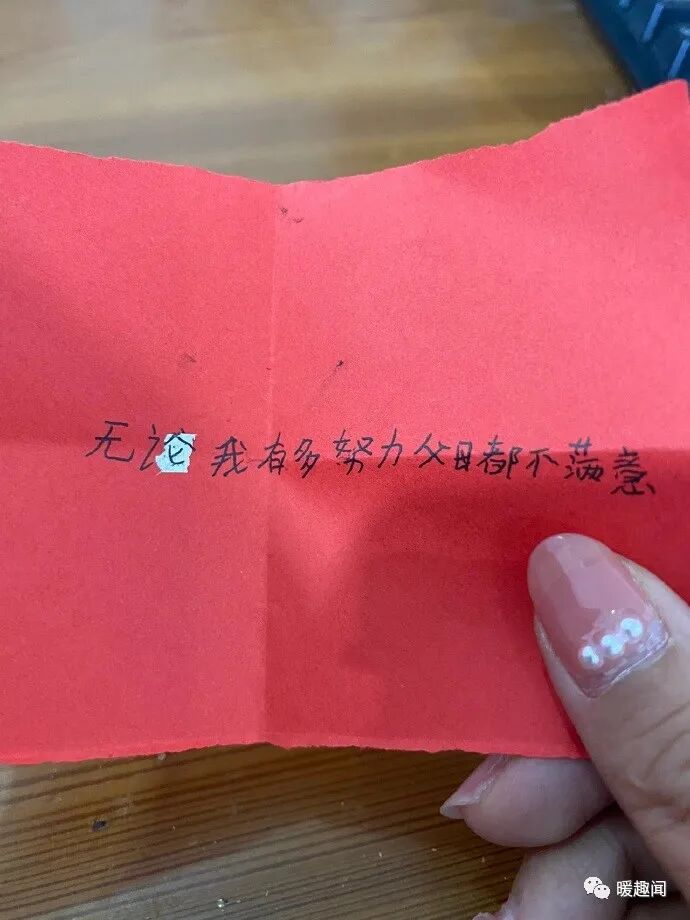 无论我有多努力父母都不满意
暖趣闻